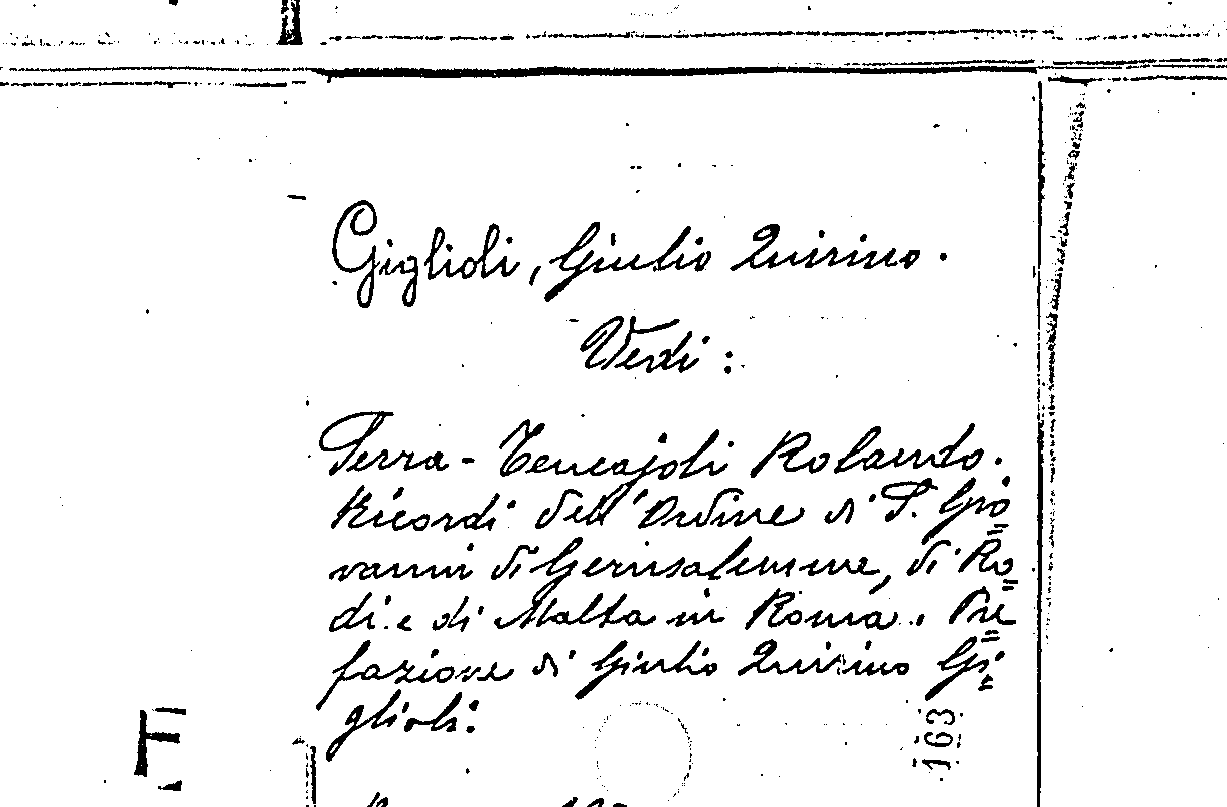 Giglioli, Giulio Quirino.
Vedi :
Serra-Tencajoli Rolando.
Ricordi dell'Ordine di S. Gio=
vanni di Gerusalemme, di Ro=
di e di Malta in Roma. Pre=
fazione di Giulio Quirino Gi=
glioli.
163
F